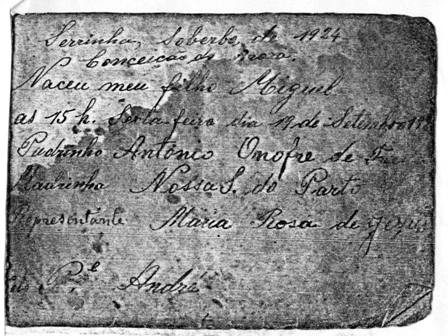 Serrinha, Soberbo, de 1924
Conceição da
Naceu meu filho Miguel
as 15 h. Sexta feira dia 19 de Setembro
Padrinho Antônio Onofre de
Madrinha Nossa S. do Parto
Representante Maria Rosa de Jezus
Pe André